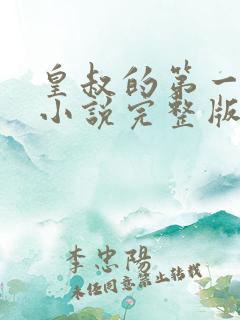 皇叔的第一
小說完整版
李忠陽
未經同意禁止轉載